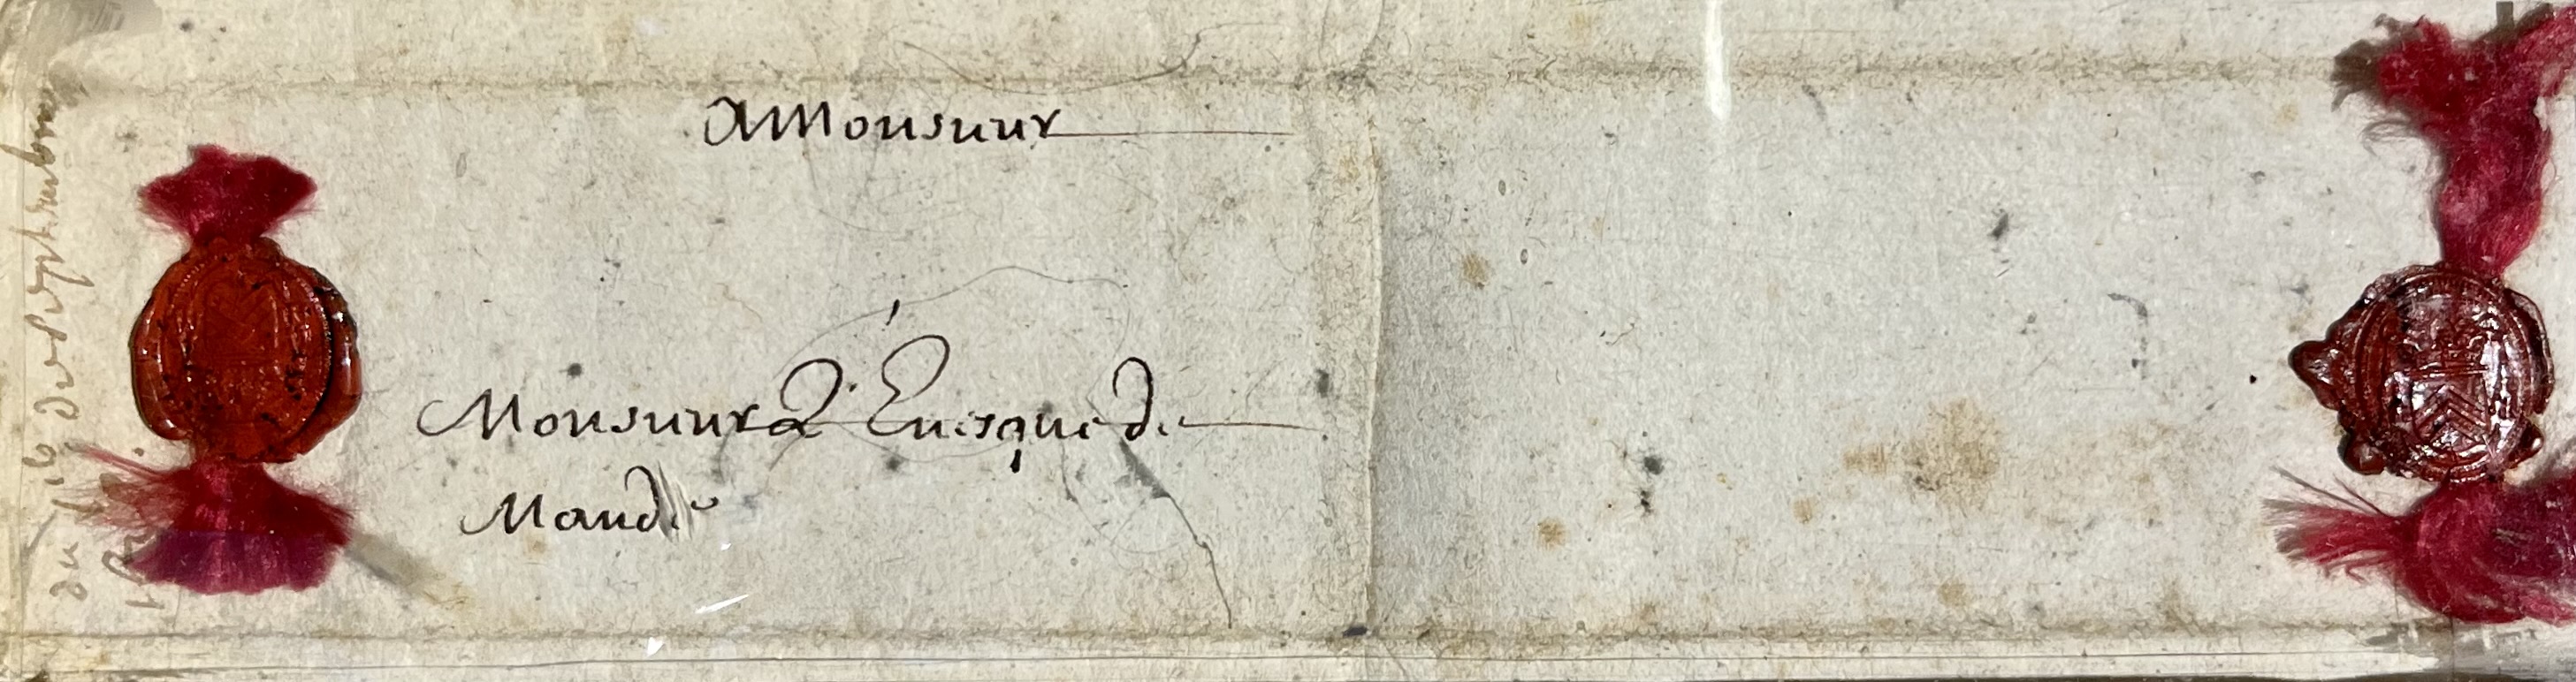 A Monsieur
Monsieur L'Euesque de
Mande
du 16 de Septembre